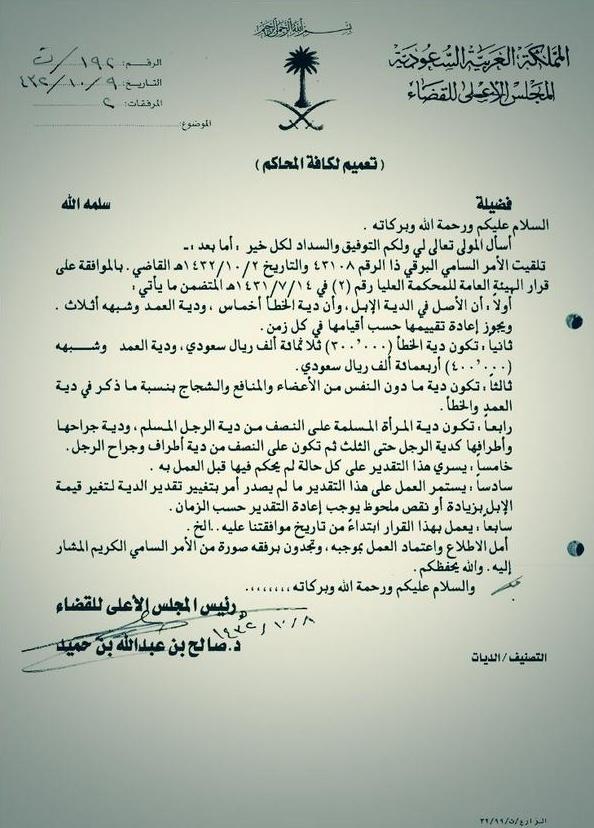 بسم الله الرحمن الرحيم
المملكة العربية السعودية
المجلس الأعلى للقضاء
الرقم: ١٩٢/ت
التاريخ: ٩/١٠/٤٣٢
المرفقات: ٢
الموضوع:
(تعميم لكافة المحاكم)
فضيلة سلمه الله
السلام عليكم ورحمة الله وبركاته .
أسأل المولى تعالى لي ولكم التوفيق والسداد لكل خير ؛ أما بعد :ـ
تلقيت الأمر السامي البرقي ذا الرقم ٤٣١٠٨ والتاريخ ١٤٣٢/١٠/٢هـ القاضي . بالموافقة على
قرار الهيئة العامة للمحكمة العليا رقم (٢) في ١٤٣١/٧/١٤هـ المتضمن ما يأتي :
أولاً : أن الأصل في الدية الإبل، وأن دية الخطأ أخماس ، ودية العمد وشبهه أثلاث .
ويجوز إعادة تقييمها حسب أقيامها في كل زمن .
ثانياً : تكون دية الخطأ (٣٠٠٬٠٠٠) ثلاثمائة ألف ريال سعودي، ودية العمد وشبهه
(٤٠٠٬٠٠٠) أربعمائة ألف ريال سعودي.
ثالثاً : تكون دية ما دون النفس من الأعضاء والمنافع والشجاج بنسبة ما ذكر في دية
العمد والخطأ .
رابعاً : تكون دية المرأة المسلمة على النصف من دية الرجل المسلم ، ودية جراحها
وأطرافها كدية الرجل حتى الثلث ثم تكون على النصف من دية أطراف وجراح الرجل .
خامساً : يسري هذا التقدير على كل حالة لم يحكم فيها قبل العمل به .
سادساً : يستمر العمل على هذا التقدير ما لم يصدر أمر بتغيير تقدير الدية لتغير قيمة
الإبل بزيادة أو نقص ملحوظ يوجب إعادة التقدير حسب الزمان .
سابعاً : يعمل بهذا القرار ابتداءً من تاريخ موافقتنا عليه . .الخ .
أمل الاطلاع واعتماد العمل بموجبه، وتجدون برفقه صورة من الأمر السامي الكريم المشار
إليه . والله يحفظكم .
والسلام عليكم ورحمة الله وبركاته ،،،،،،،،
رئيس المجلس الأعلى للقضاء
١٤٣٢/١٠/٨
د. صالح بن عبدالله بن حميد
التصنيف / الديات